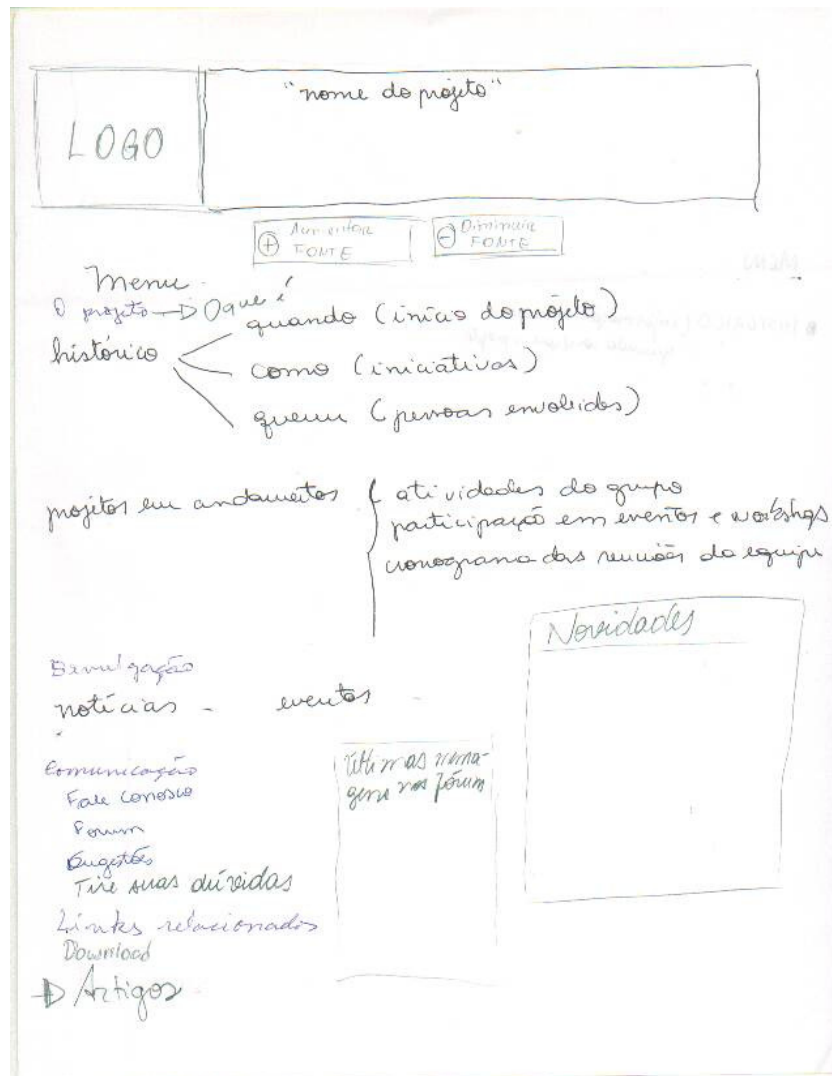 "nome do projeto"
LOGO
+ Aumentar FONTE
- Diminuir FONTE
Menu
O projeto → O que é
histórico
quando (início do projeto)
como (iniciativas)
quem (pessoas envolvidas)
projetos em andamentos
atividades do grupo
participação em eventos e workshops
cronograma das reuniões da equipe
Novidades
Divulgação
notícias - eventos -
Últimas
gens nos fórum
Comunicação
Fale conosco
Forum
Sugestões
Tire suas dúvidas
Links relacionados
Download
→ Artigos